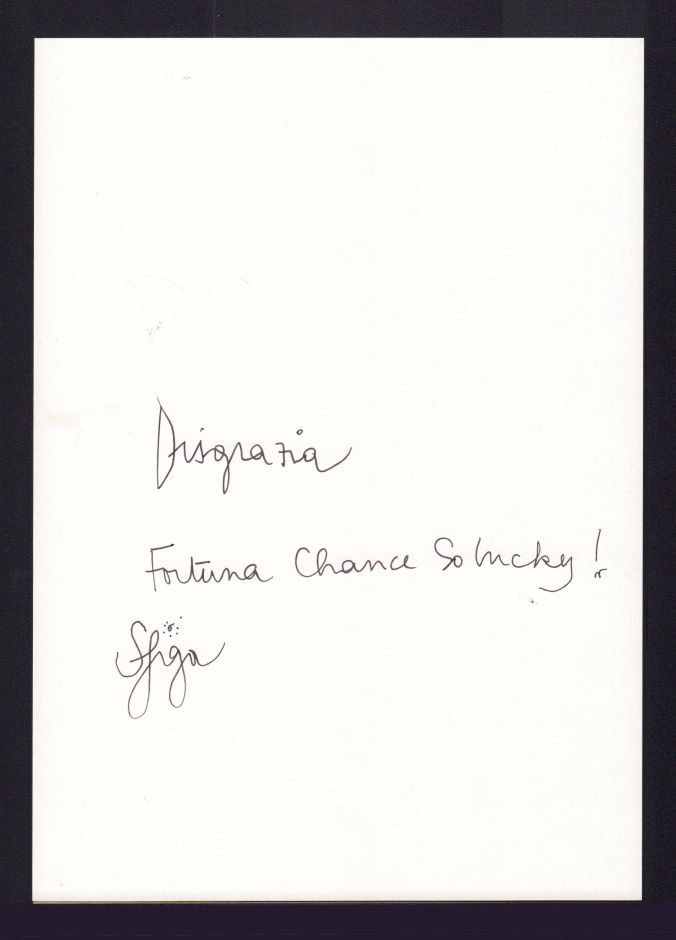 Disgrazia
Fortuna Chance So lucky!
Sfiga